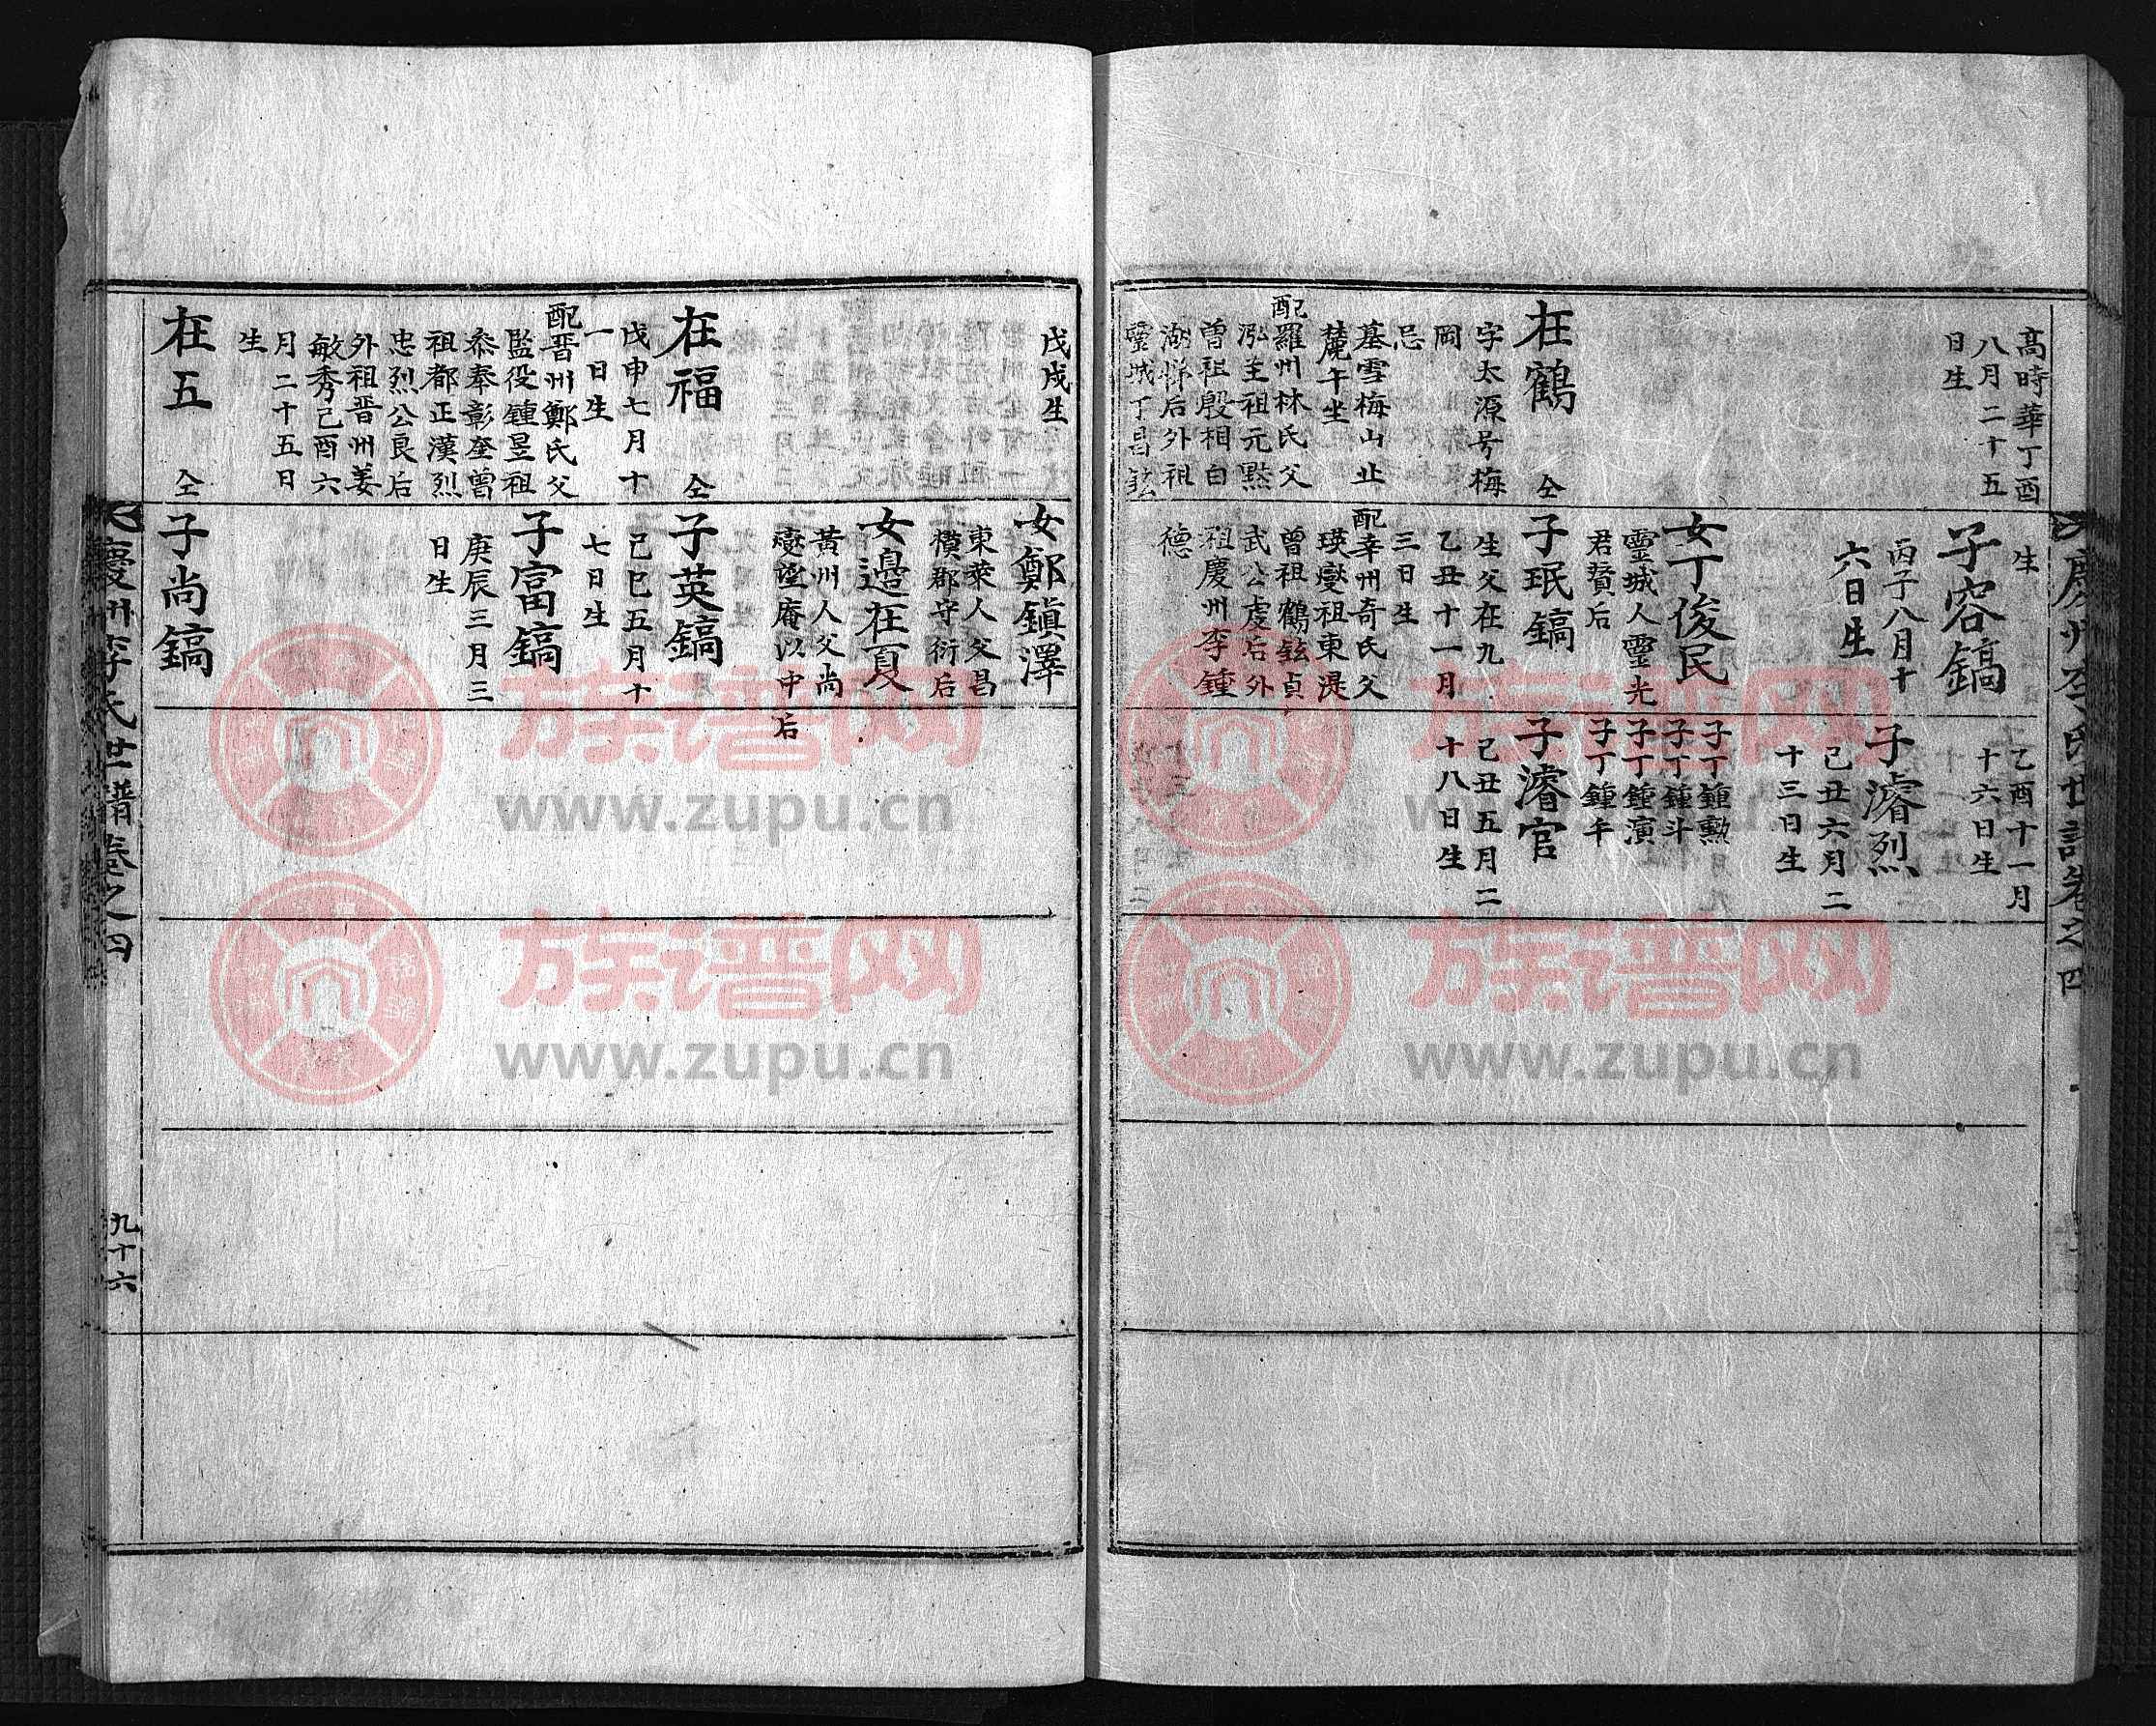 慶州李氏世譜卷之四
高時華丁酉
八月二十五
日生
在鶴 仝
字太源号梅
岡
忌
墓雪梅山止
麓午坐
配羅州林氏父
泓圭祖元黙
曾祖殷相白
湖悌后外祖
靈城丁昌鉉
生
子容鎬
丙子八月十
六日生
女丁俊民
靈城人靈光
君贇后
子珉鎬
生父在九
乙丑十一月
三日生
配幸州奇氏父
瑛燮祖東湜
曾祖鶴鉉貞
武公虔后外
祖慶州李鍾
德
乙酉十一月
十六日生
子濬烈
己丑六月二
十三日生
子丁鍾勳
子丁鍾斗
子丁鍾演
子丁鍾午
子濬官
己丑五月二
十八日生
戊戌生
在福 仝
戊申七月十
一日生
配晋州鄭氏父
監役鍾昱祖
叅奉彰奎曾
祖都正漢烈
忠烈公良后
外祖晋州姜
敏秀己酉六
月二十五日
生
在五 仝
女鄭鎭澤
東萊人父昌
櫕郡守衍后
女邊在夏
黃州人父尚
燮望庵以中后
子英鎬
己巳五月十
七日生
子富鎬
庚辰三月三
日生
子尚鎬
慶州李氏世譜卷之四
九十六
族谱网
www.zupu.cn
族谱网
www.zupu.cn
族谱网
www.zupu.cn
族谱网
www.zupu.cn